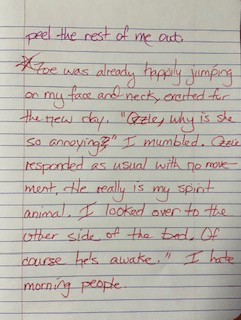 peel the rest of me out.
Zoe was already happily jumping
on my face and neck, excited for
the new day. "Ozzie, why is she
so annoying?" I mumbled. Ozzie
responded as usual with no move-
ment. He really is my spirit
animal. I looked over to the
other side of the bed. Of
course he's awake." I hate
morning people.